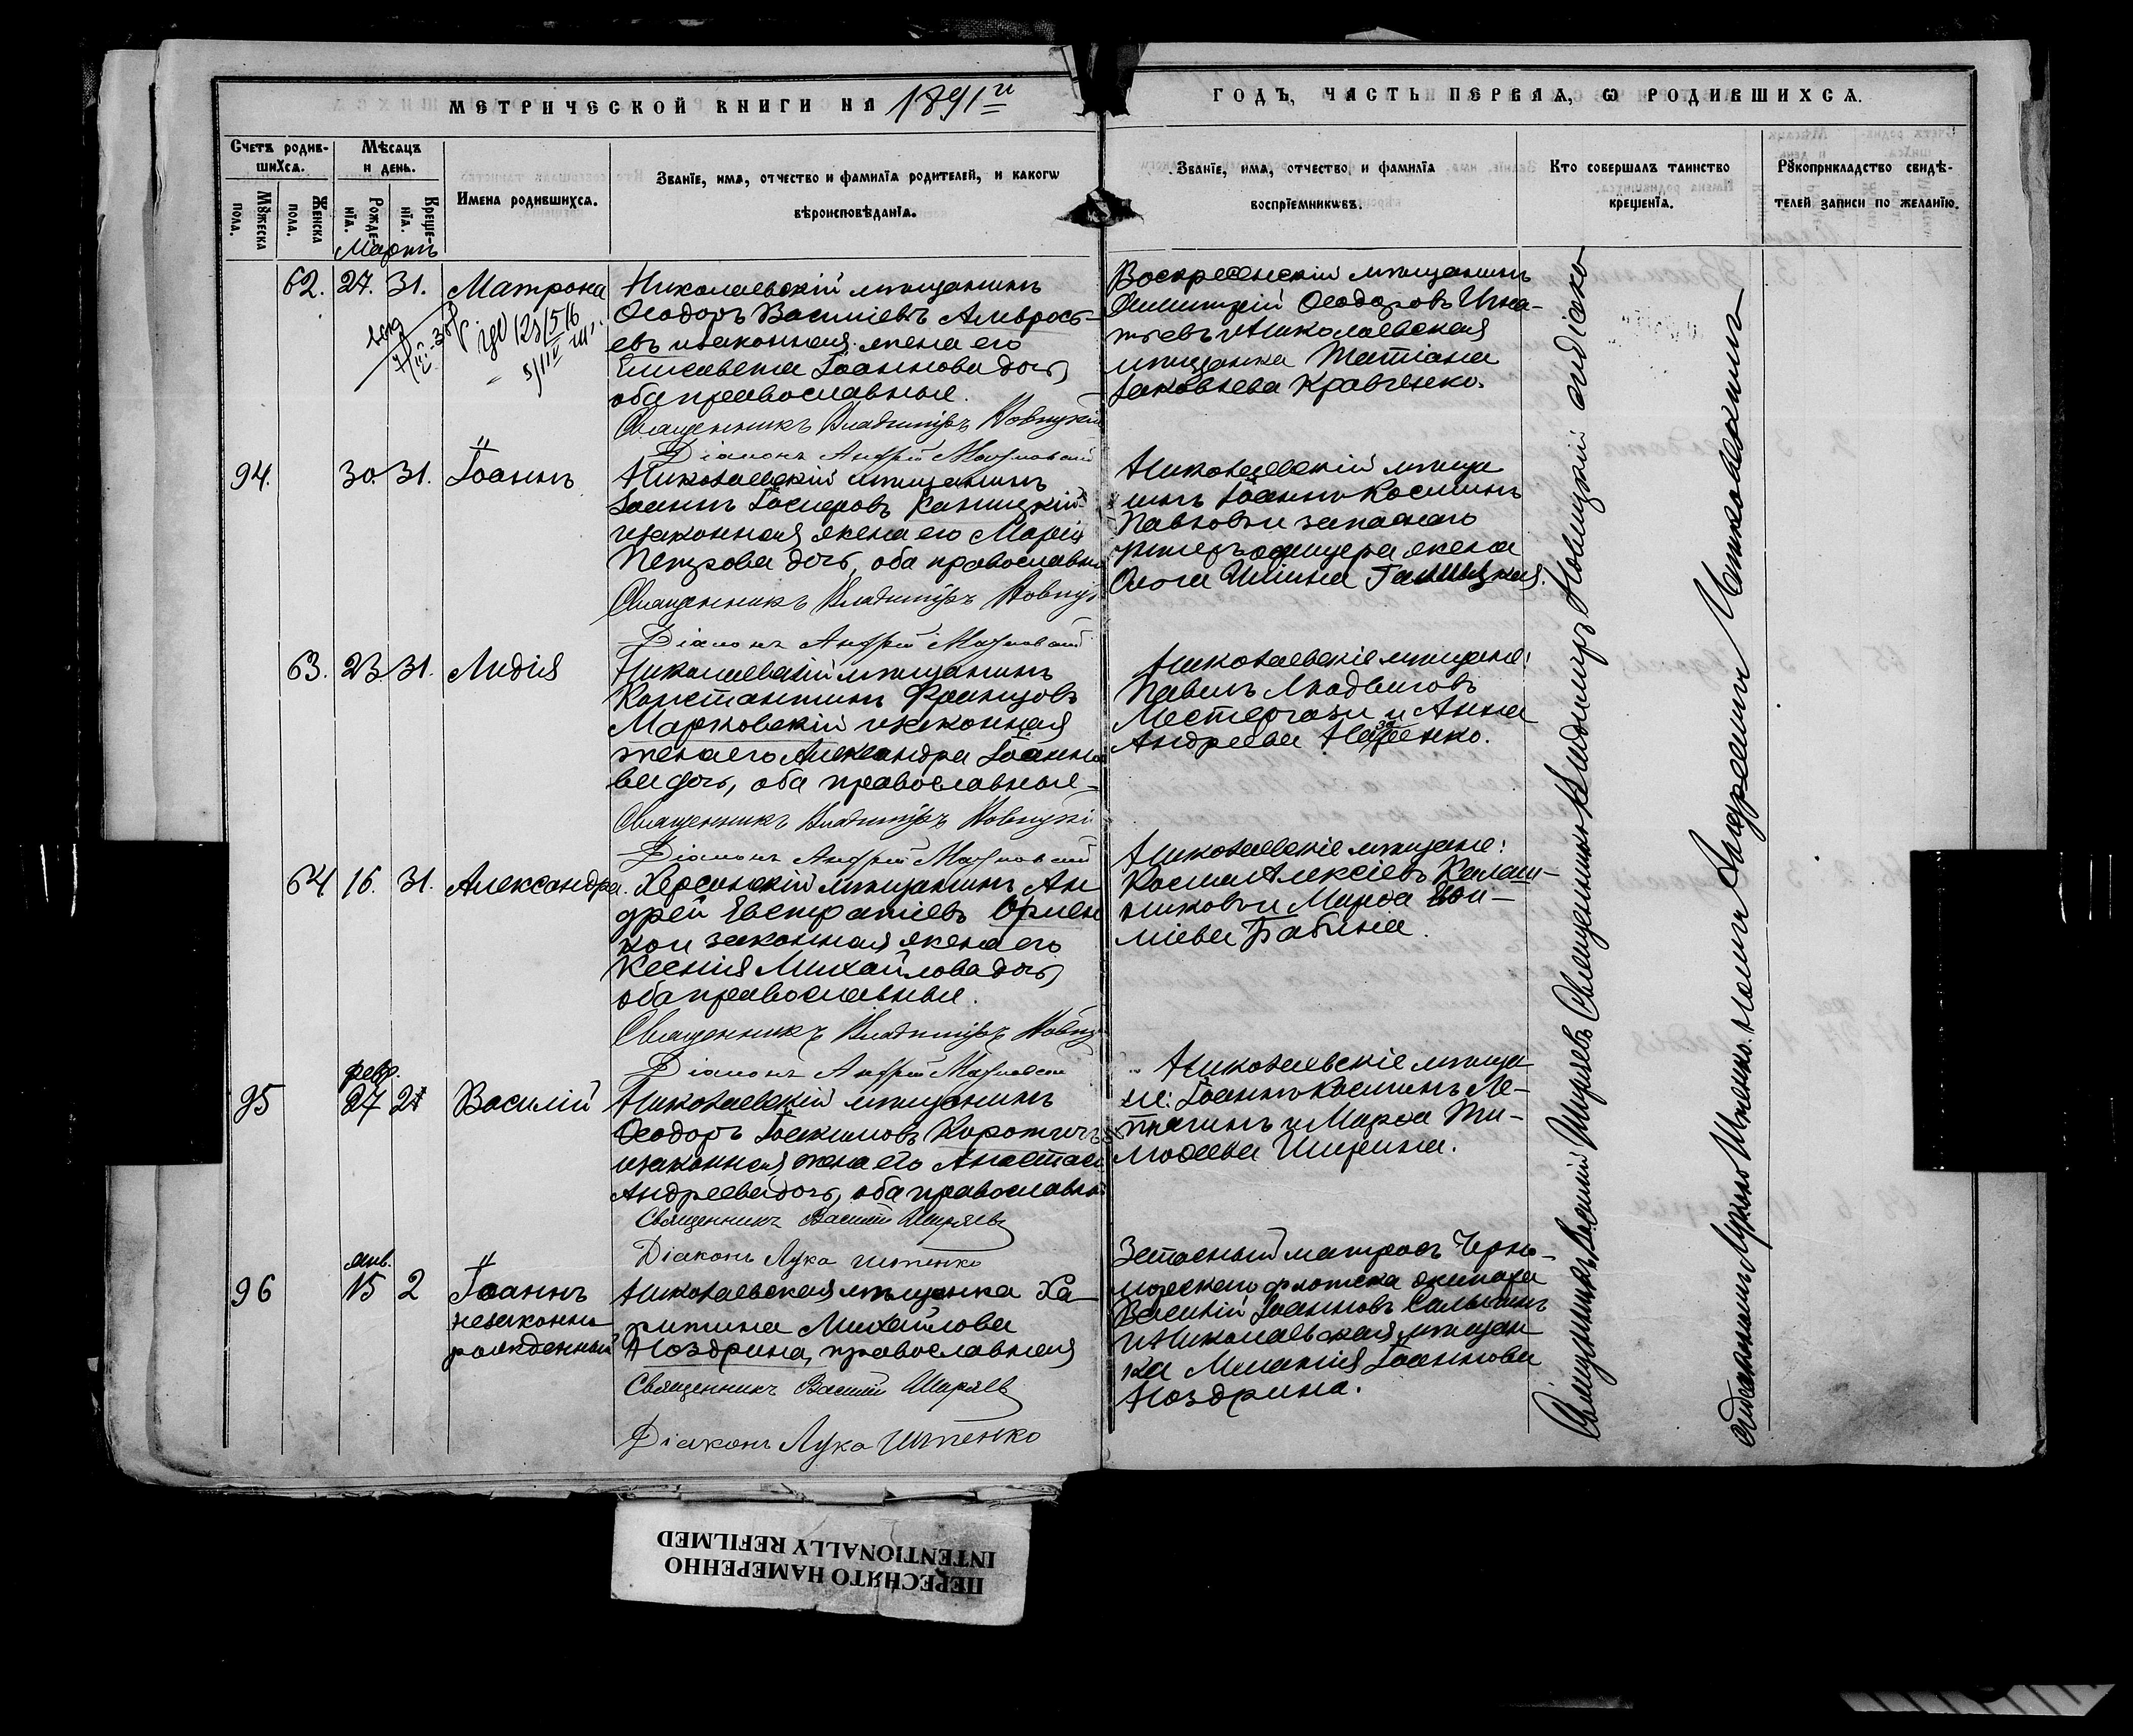 МЕТРИЧЕСКОЙ КНИГИ НА 1891й ГОДЪ, ЧАСТЬ ПЕРВАЯ, Ѡ РОДИВШИХСЯ.
Счетъ родив-
шихся.
Мѣсяцъ
и день.
Имена родившихся.
Званіе, имя, отчество и фамилія родителей, и какогѡ
вѣроисповѣданія.
Званіе, имя, отчество и фамилія
воспріемникѡвъ.
Кто совершалъ таинство
крещенія.
Рꙋкоприкладство свидѣ-
телей записи по желанію.
Мꙋжеска
пола.
Женска
пола.
Рожде-
нія.
Креще-
нія.
Мартъ
62. 27. 31. Матрона
Николаевскій мѣщанинъ
Ѳеодоръ Василіевъ Амврось-
евъ и законная жена его
Елисавета Іоаннова дочь,
оба православные.
Священникъ Владиміръ Новицкій
Діаконъ Андрей
Воскресенскій мѣщанинъ
Димитрій Ѳеодоровъ Игна-
тьевъ и Николаевская
мѣщанка Татіана
Іаковлева Кравченко.
94. 30. 31. Іоаннъ
Николаевскій мѣщанинъ
Іоаннъ Каницкій
и законная жена его Марія
Петрова дочь, оба православные
Священникъ Владиміръ Новицкій
Діаконъ Андрей
Николаевскій мѣща
нинъ Іоаннъ Косминъ
Павловъ и запаснаго
унтеръ офицера жена
Ольга Ильина Галицкая.
63. 23. 31. Лидія
Николаевскій мѣщанинъ
Константинъ Францовъ
Марковскій и законная
жена его Александра Іоанно
ва дочь, оба православные
Священникъ Владиміръ Новицкі
Діаконъ Андрей
Николаевскіе мѣщане:
Павелъ Людвиговъ
Местергази и Анна
Андреева
64 16. 31. Александра.
Херсонскій мѣщанинъ Ан
дрей Евстратіевъ Орлен
ко и законная жена его
Ксенія Михайлова дочь,
оба православные.
Священникъ Владиміръ Новиц
Діаконъ Андрей
Николаевскіе мѣщане:
Косма Алексіевъ Калаш-
никовъ и Марѳа
Бабина.
февр.
95 27 21 Василій
Николаевскій мѣщанинъ
Ѳеодоръ Іоакимовъ Коротичъ
и законная жена его Анастасі
Андреева дочь, оба православн
Священникъ Василій Ширяевъ
Діаконъ Лука Штенко
Николаевскіе мѣща
не: Іоаннъ Косминъ Ле-
и Марѳа Ти-
моѳеева Ширина.
янв.
96 15 2 Іоаннъ
незаконно
рожденный
Николаевская мѣщанка Ха-
ритина Михайлова
Ноздрина, православная
Священникъ Василій Ширяевъ
Діаконъ Лука Штенко
Запасный матросъ Черно-
морскаго флотска экипажа
Василій Іоанновъ
и Николаевская мѣщан
ка Меланія Іоаннова
Ноздрина.
Священникъ Василій Ширяевъ Священникъ Владиміръ Новицкій съ діако
ПЕРЕСНЯТО НАМЕРЕННО
INTENTIONALLY REFILMED